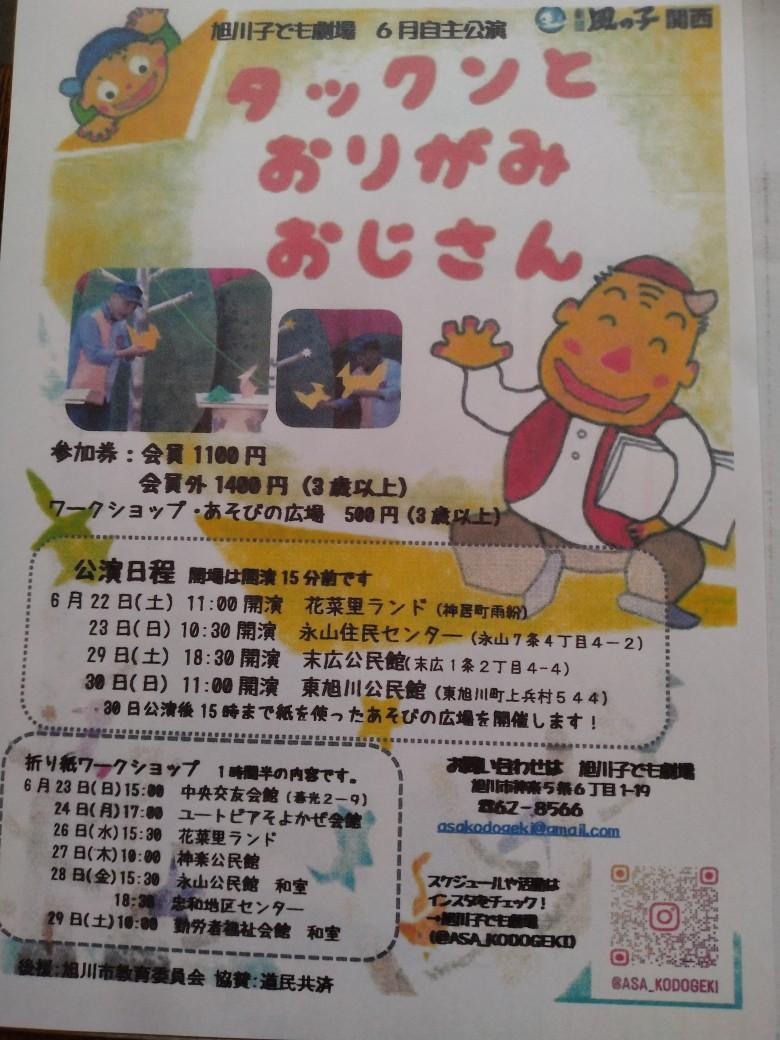 旭川子ども劇場 6月自主公演
劇団 風の子 関西
タックンと
おりがみ
おじさん
参加券：会員1100円
会員外1400円（3歳以上）
ワークショップ・あそびの広場 500円（3歳以上）
公演日程 開場は開演15分前です
6月22日(土) 11:00開演 花菜里ランド（神居町雨紛）
23日(日) 10:30開演 永山住民センター（永山7条4丁目4－2）
29日(土) 18:30開演 末広公民館(末広1条2丁目4-4)
30日(日) 11:00開演 東旭川公民館（東旭川町上兵村544）
・30日公演後15時まで紙を使ったあそびの広場を開催します！
折り紙ワークショップ 1時間半の内容です。
6月23日(日)15:00 中央交友会館（春光2－9）
24日(月)17:00 ユートピアそよかぜ会館
26日(水)15:30 花菜里ランド
27日(木)10:00 神楽公民館
28日(金)15:30 永山公民館 和室
18:30 忠和地区センター
29日(土)10:00 勤労者福祉会館 和室
お問い合わせは 旭川子ども劇場
旭川市神楽5条6丁目1-19
☎62－8566
asakodogeki@gmail.com
スケジュールや活動は
インスタをチェック！
→旭川子ども劇場
(@ASA_KODOGEKI)
@ASA_KODOGEKI
後援：旭川市教育委員会 協賛：道民共済